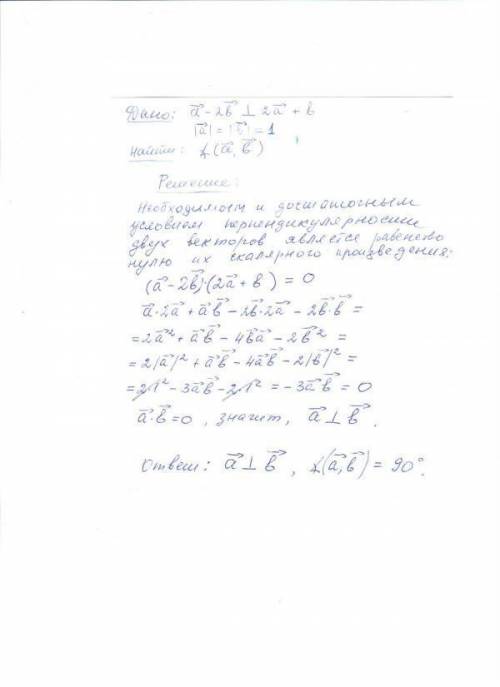 Дано: a⃗ - 2b⃗ ⊥ 2a⃗ + b
|a⃗| = |b⃗| = 1
Найти: ∡(a⃗, b⃗)
Решение:
Необходимым и достаточным
условием перпендикулярности
двух векторов является равенство
нулю их скалярного произведения:
(a⃗ - 2b⃗)·(2a⃗ + b⃗) = 0
a⃗·2a⃗ + a⃗b⃗ - 2b⃗·2a⃗ - 2b⃗·b⃗ =
= 2a⃗² + a⃗b⃗ - 4b⃗a⃗ - 2b⃗² =
= 2|a⃗|² + a⃗b⃗ - 4a⃗b⃗ - 2|b⃗|² =
= 2·1² - 3a⃗b⃗ - 2·1² = -3a⃗b⃗ = 0
a⃗·b⃗ = 0, значит, a⃗ ⊥ b⃗.
Ответ: a⃗ ⊥ b⃗, ∡(a⃗, b⃗) = 90°.